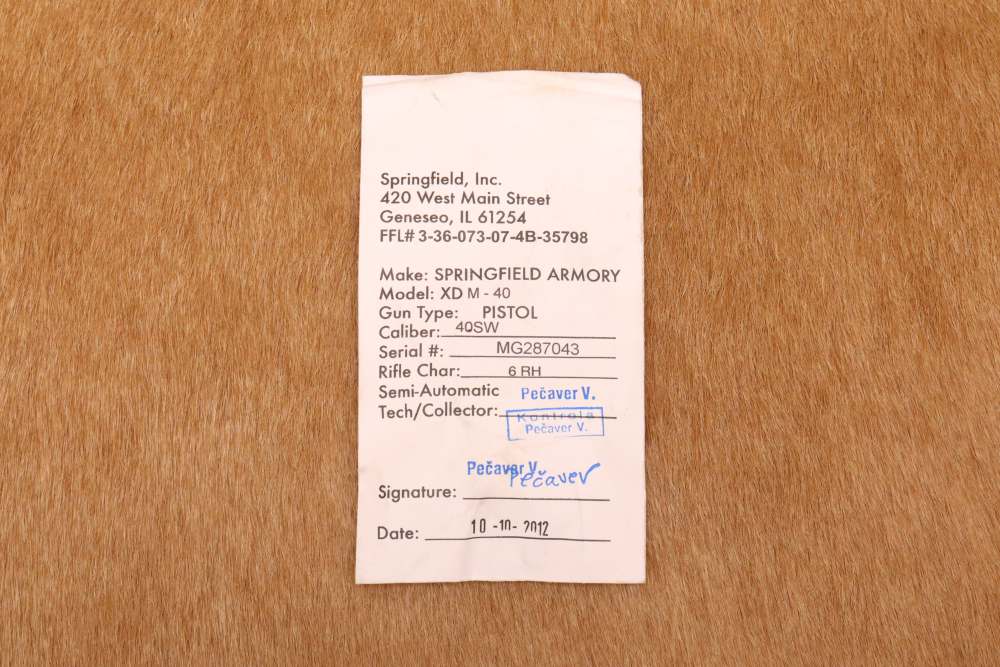 Springfield, Inc.
420 West Main Street
Geneseo, IL 61254
FFL# 3-36-073-07-4B-35798
Make: SPRINGFIELD ARMORY
Model: XD M - 40
Gun Type: PISTOL
Caliber: 40SW
Serial #: MG287043
Rifle Char: 6 RH
Semi-Automatic Pečaver V.
Tech/Collector: Kontrola
Pečaver V.
Pečaver V.
Pečaver
Signature:
Date: 10 -10- 2012